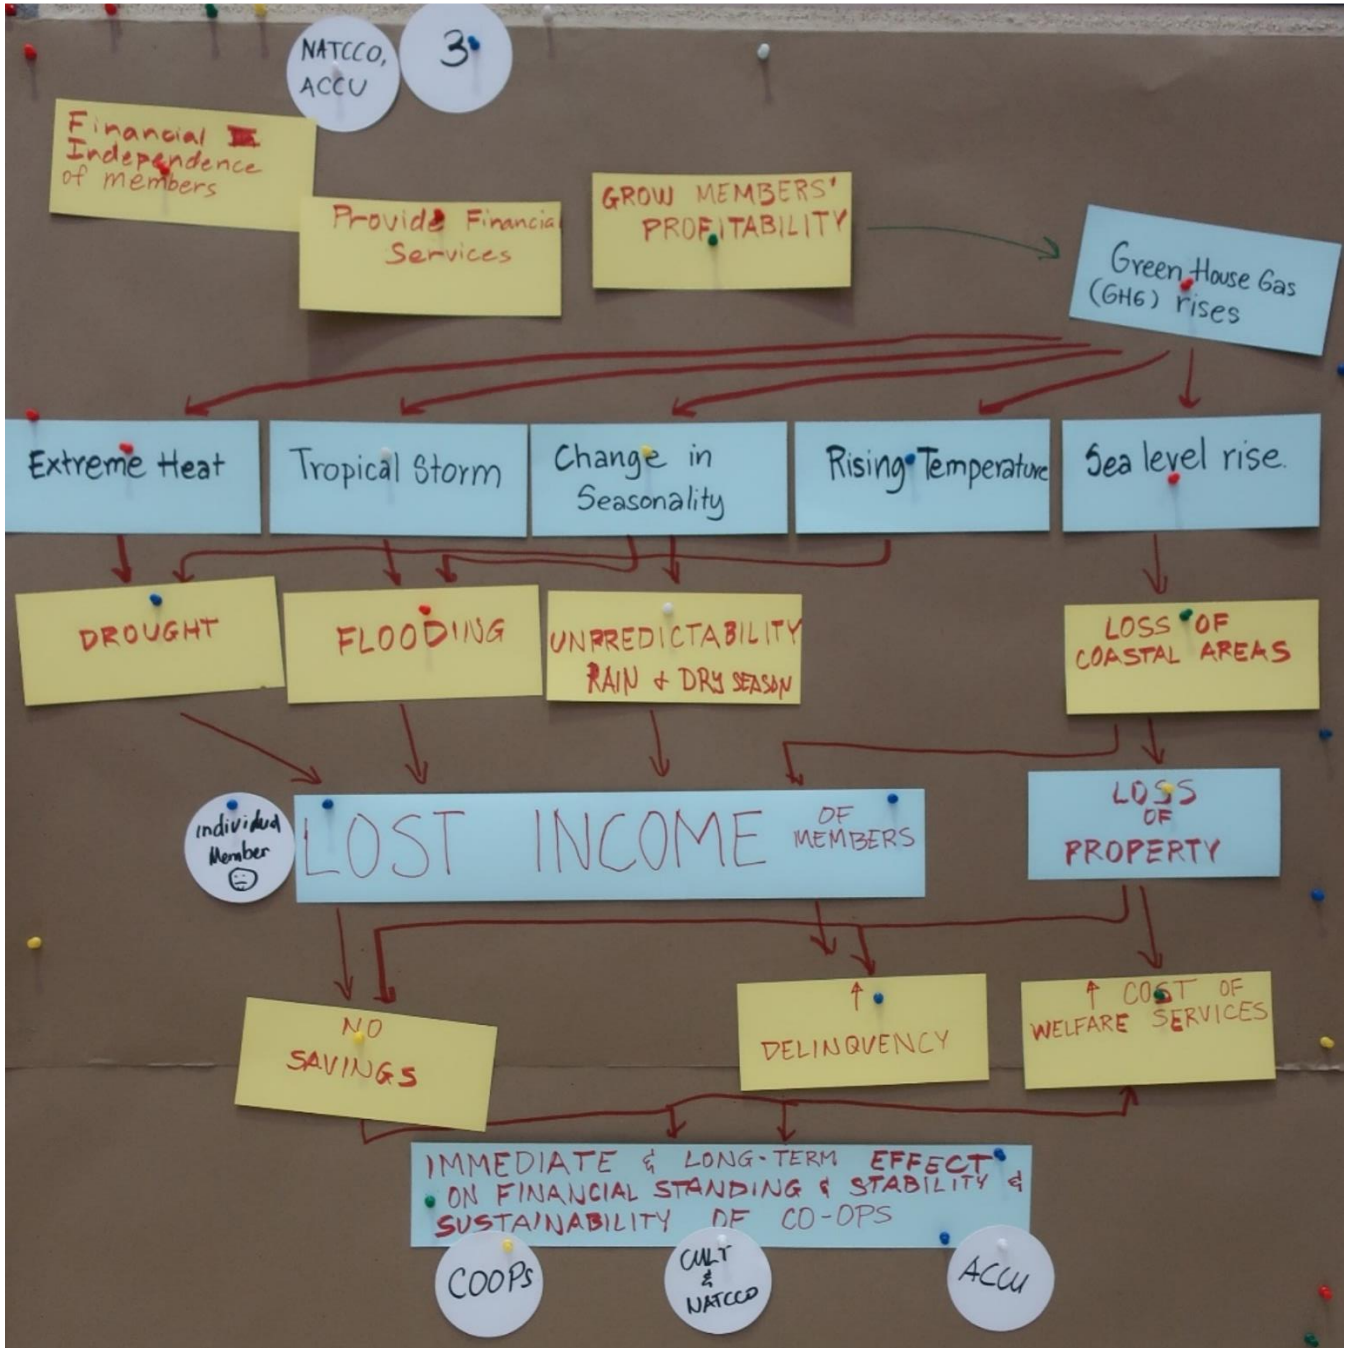 NATCCO,
ACCU
3
Financial
Independence
of members
Provide Financial
Services
GROW MEMBERS'
PROFITABILITY
Green House Gas
(GHG) rises
Extreme Heat
Tropical Storm
Change in
Seasonality
Rising Temperature
Sea level rise.
DROUGHT
FLOODING
UNPREDICTABILITY
RAIN & DRY SEASON
LOSS OF
COASTAL AREAS
Individual
Member
LOST INCOME OF
MEMBERS
LOSS
OF
PROPERTY
NO
SAVINGS
↑
DELINQUENCY
↑ COST OF
WELFARE SERVICES
IMMEDIATE & LONG-TERM EFFECT
ON FINANCIAL STANDING & STABILITY &
SUSTAINABILITY OF CO-OPS
COOPs
CULT
&
NATCCO
ACCU